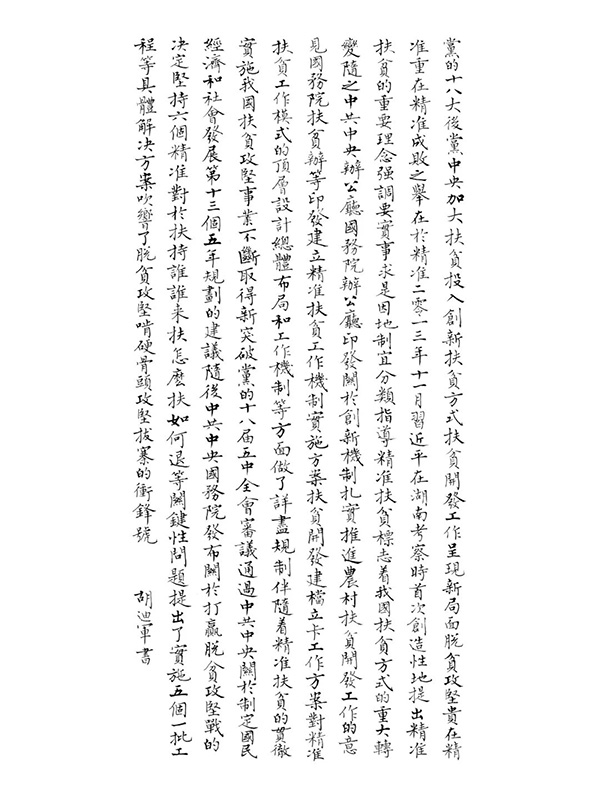 黨的十八大後黨中央加大扶貧投入創新扶貧方式扶貧開發工作呈現新局面脫貧攻堅貴在精
准重在精准成敗之舉在於精准二零一三年十一月習近平在湖南考察時首次創造性地提出精准
扶貧的重要理念強調要實事求是因地制宜分類指導精准扶貧標志着我國扶貧方式的重大轉
變隨之中共中央辦公廳國務院辦公廳印發關於創新機制扎實推進農村扶貧開發工作的意
見國務院扶貧辦等印發建立精准扶貧工作機制實施方案扶貧開發建檔立卡工作方案對精准
扶貧工作模式的頂層設計總體布局和工作機制等方面做了詳盡規制伴隨着精准扶貧的貫徹
實施我國扶貧攻堅事業不斷取得新突破黨的十八届五中全會審議通過中共中央關於制定國民
經濟和社會發展第十三個五年規劃的建議隨後中共中央國務院發布關於打贏脫貧攻堅戰的
決定堅持六個精准對於扶持誰誰来扶怎麽扶如何退等關鍵性問題提出了實施五個一批工
程等具體解決方案吹響了脫貧攻堅啃硬骨頭攻堅拔寨的衝鋒號
胡迪軍書